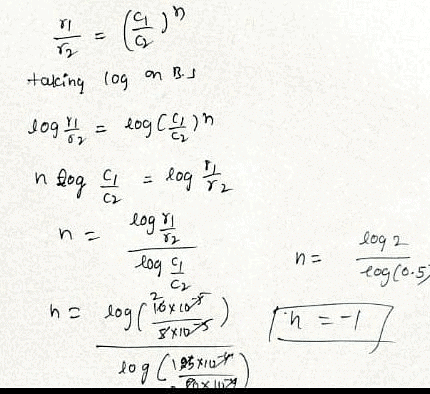 r1/r2 = (C1/C2)^n
taking log on B.S
log r1/r2 = log (C1/C2)^n
n log C1/C2 = log r1/r2
n = log r1/r2 / log C1/C2
n = log 2 / log (0.5)
n = log (
n = -1